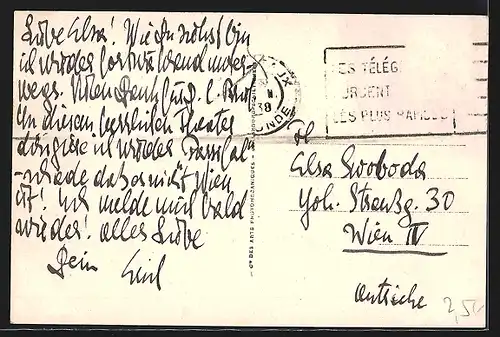 Liebe Elsa! Wie du siehst bin
ich wieder fortwährend unter-
wegs. Vielen Dank für l. Brief
In diesem herrlichen Theater
dirigiere ich wieder "Parsifal"
- schade dass es nicht Wien
ist! Ich melde mich bald
wieder! Alles Liebe
Dein Emil
IX
38
ONDE
LES TÉLÉG
URGENT
LES PLUS RAPIDES
Cie DES ARTS PHOTOMÉCANIQUES
Elsa Swoboda
Joh. Straußg. 30
Wien IV
Autriche
2,50